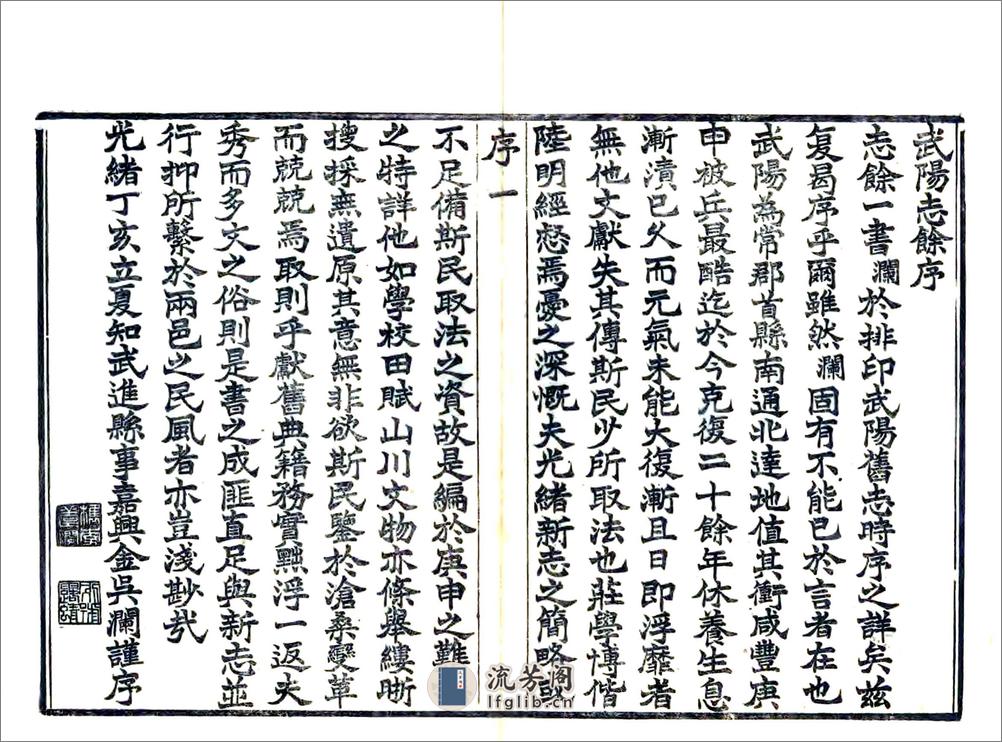 武陽志餘序
志餘一書瀾於排印武陽舊志時序之詳矣茲
复曷序乎爾雖然瀾固有不能已於言者在也
武陽為常郡首縣南通北達地值其衝咸豐庚
申被兵最酷迄於今克復二十餘年休養生息
漸漬已久而元氣未能大復漸且日即浮靡者
無他文獻失其傳斯民少所取法也莊學博偕
陸明經愁焉憂之深慨夫光緒新志之簡略
序 一
不足備斯民取法之資故是編於庚申之難
之特詳他如學校田賦山川文物亦條舉縷晰
搜採無遺原其意無非欲斯民鑒於滄桑變革
而兢兢焉取則乎獻舊典籍務實黜浮一返夫
秀而多文之俗則是書之成匪直足與新志並
行抑所繫於兩邑之民風者亦豈淺尠哉
光緒丁亥立夏知武進縣事嘉興金吳瀾謹序
流芳阁
lfglib.cn